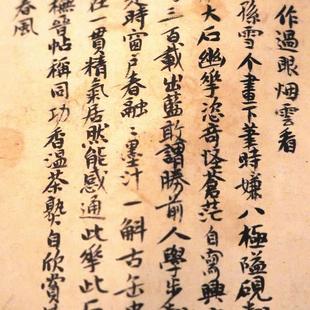 作過眼烟雲看
孫雪个畫下筆時嫌八極隘硯
大石幽華恣奇怪蒼茫自寫興
三百載出藍敢謂勝前人學步
時窗戶春融〻墨汁一斛古缶
一貫精氣居然能感通此華此石
橅晉帖稱同功香溫茶熟自欣賞
春風